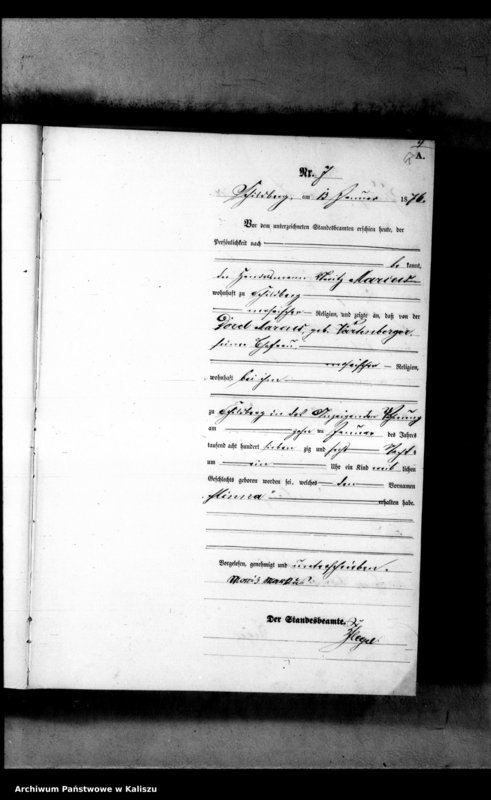 A.
Nr. 7
Schildberg, am 13 Januar 1876.
Vor dem unterzeichneten Standesbeamten erschien heute, der
Persönlichkeit nach
be kannt,
der Handelsmann Moritz Marcus
wohnhaft zu Schildberg
mosaischer Religion, und zeigte an, daß von der
Marcus, geb. Wartenberger
seiner Ehefrau
mosaischer Religion,
wohnhaft bei ihm
zu Schildberg in des Anzeigenden Wohnung
am zehn ten Januar des Jahres
tausend acht hundert sieben zig und sechs Nachts
um ein Uhr ein Kind weib lichen
Geschlechts geboren worden sei, welches den Vornamen
Minna
erhalten habe.
Vorgelesen, genehmigt und unterschrieben.
Moritz Marcus
Der Standesbeamte.
Archiwum Państwowe w Kaliszu